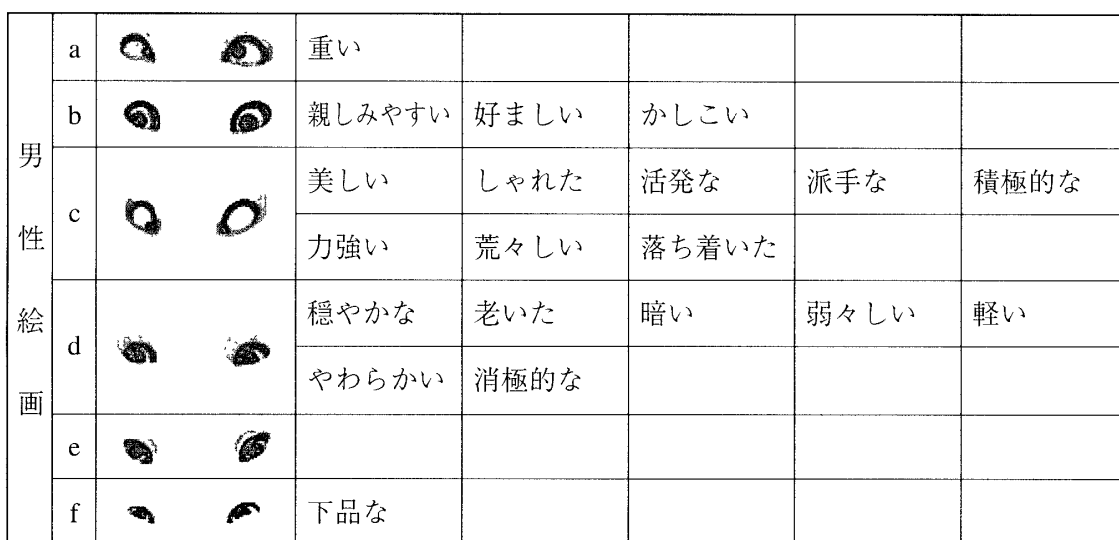 男性絵画
a 重い
b 親しみやすい 好ましい かしこい
c 美しい しゃれた 活発な 派手な 積極的な
力強い 荒々しい 落ち着いた
d 穏やかな 老いた 暗い 弱々しい 軽い
やわらかい 消極的な
e
f 下品な